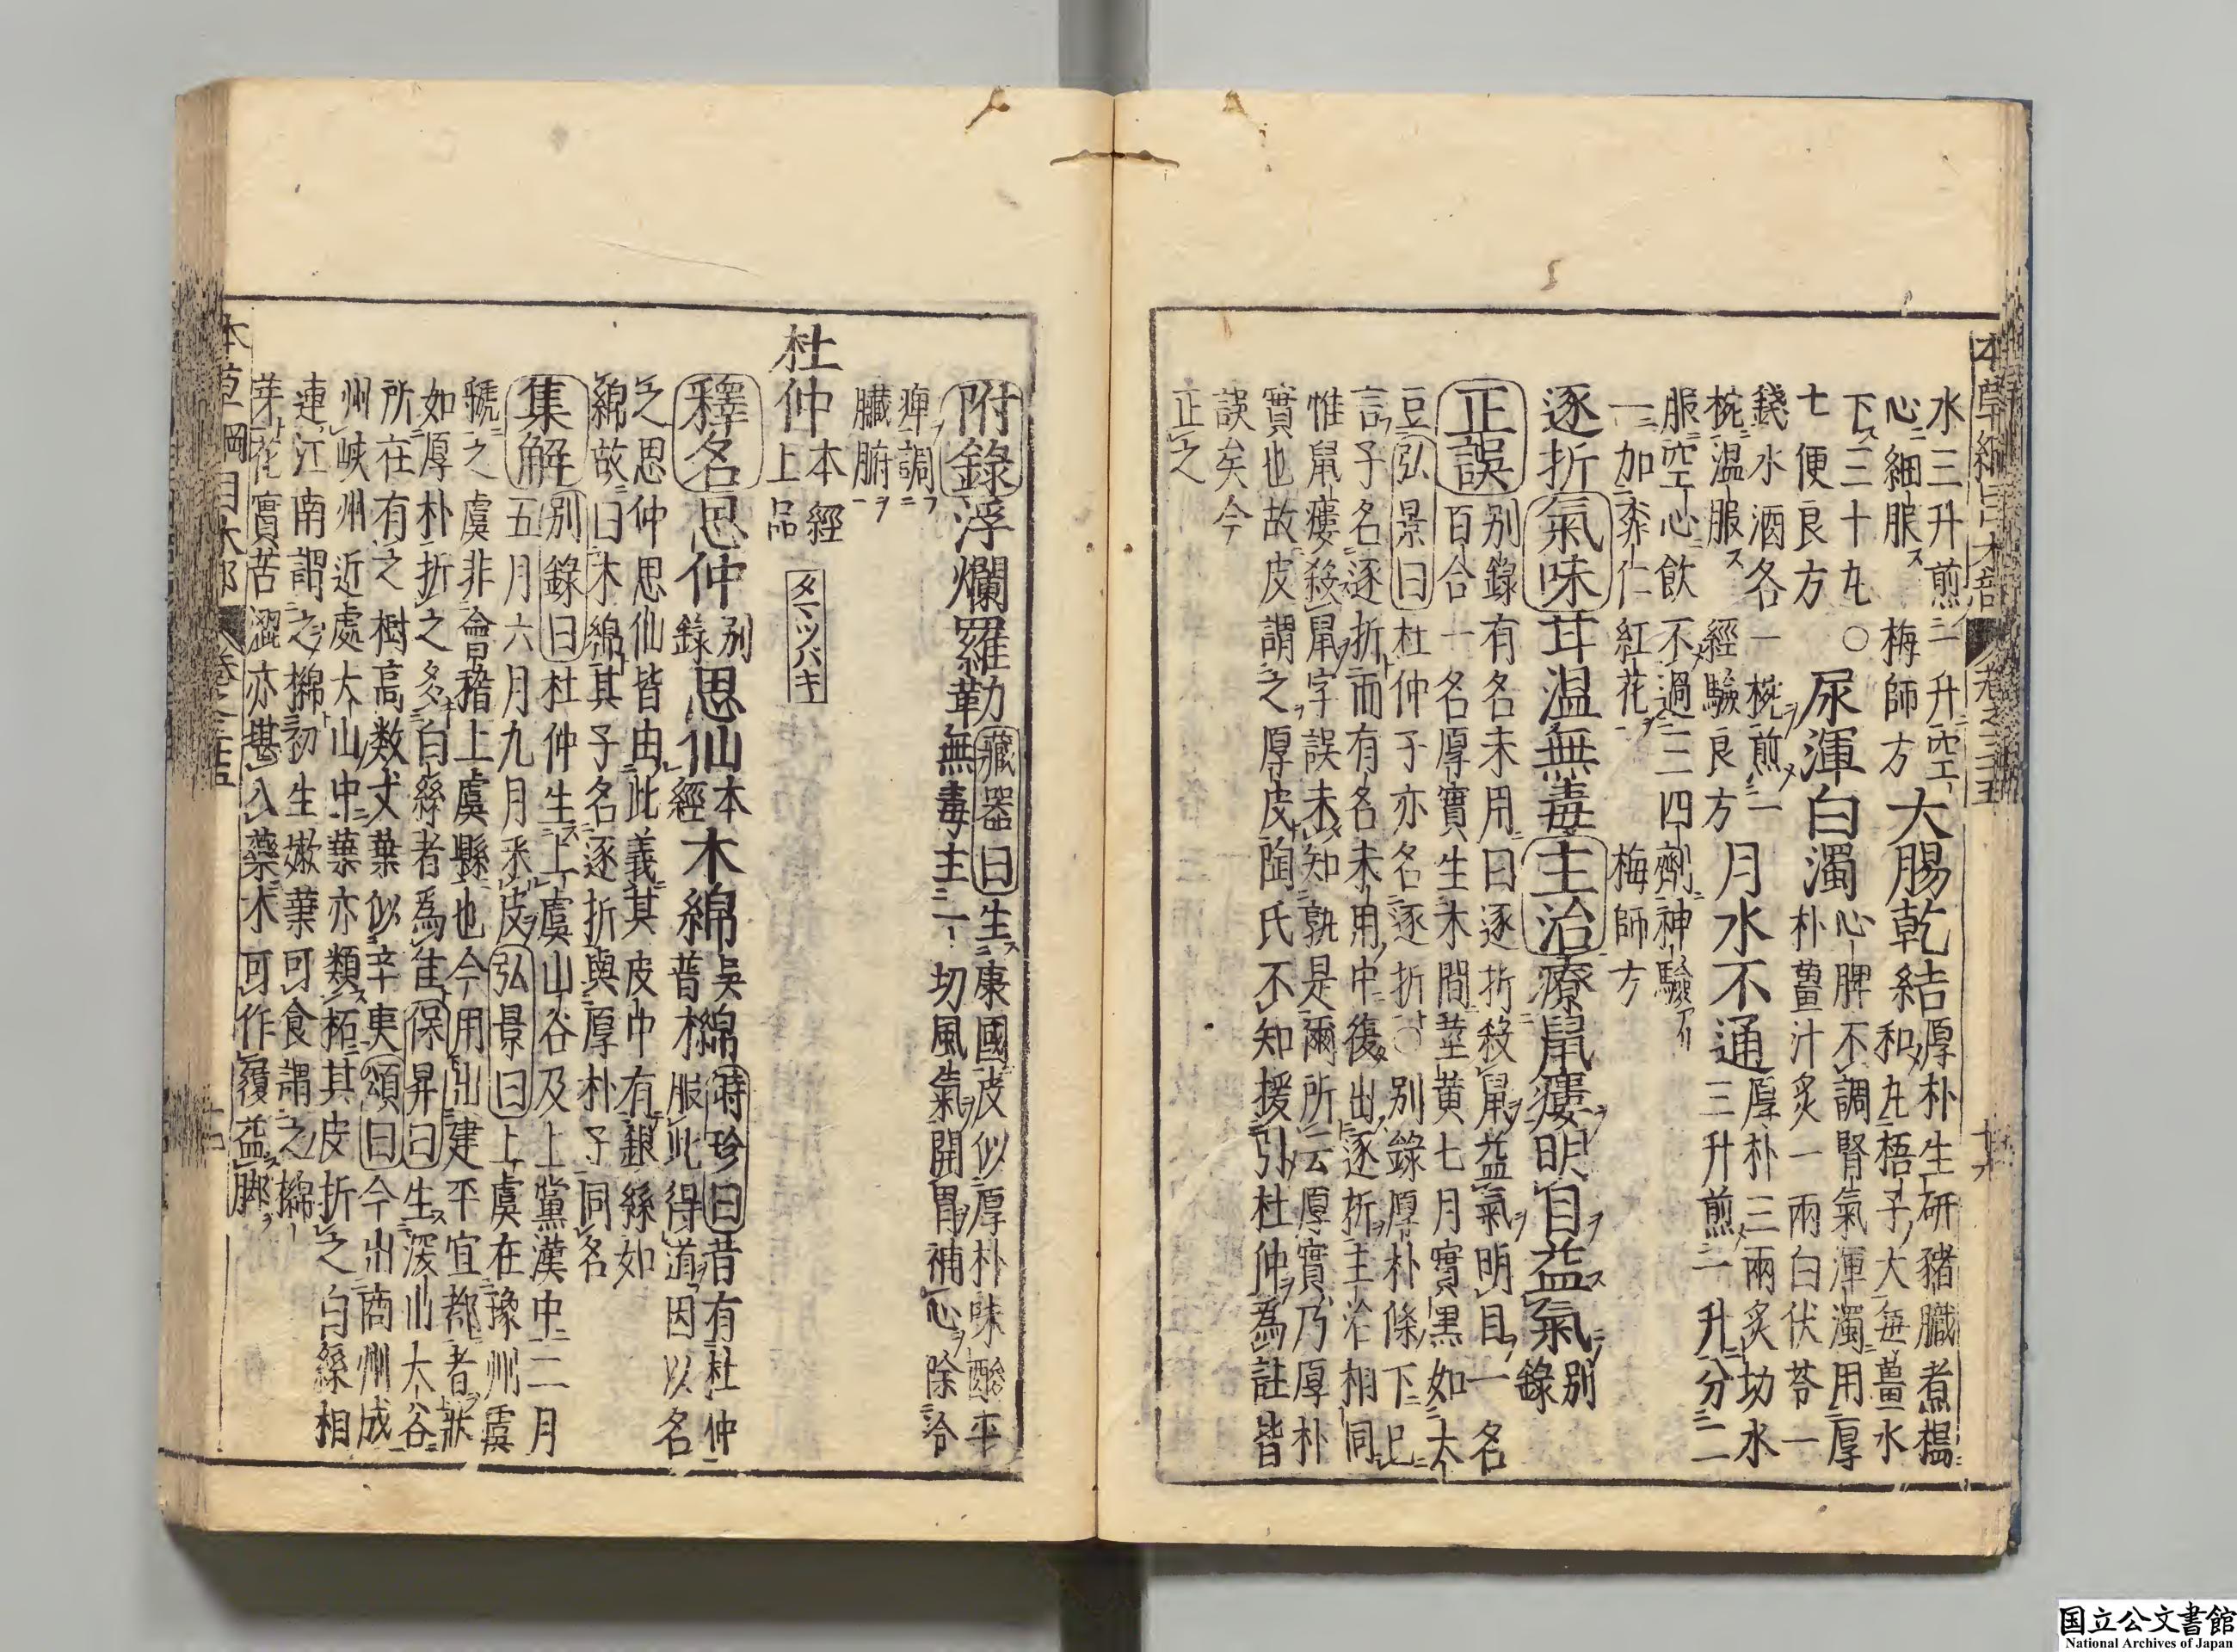 水三升煎二升空
心細服 梅師方 大腸乾結 厚朴生研豬臟煮搗
和丸梧子大每薑水
下三十丸○ 尿渾白濁 心脾不調腎氣渾濁用厚
朴薑汁炙一兩白伏苓一
七便良方
錢水酒各一椀煎一 月水不通 厚朴三兩炙切水
三升煎二升分二
椀温服 經驗良方
服空心飲不過三四劑神驗
一加桃仁紅花 梅師方
逐折氣味苷温無毒主治療鼠瘻明目益氣 別錄
正誤 別錄有名未用曰逐折殺鼠益氣明目一名
百合一名厚實生木間莖黄七月實黑如大
豆弘景曰杜仲子亦名逐折○別錄厚朴條下已
言子名逐折而有名未用中復出逐折主治相同
惟鼠瘻殺鼠字誤未知孰是爾所云厚實乃厚朴
實也故皮謂之厚皮陶氏不知援引杜仲為註皆
誤矣今
正之
附錄浮爛羅勒 藏器曰生康國皮似厚朴味酸平
無毒主一切風氣開胃補心除冷
痺調
臟腑
杜仲 本經上品 タマツバキ
釋名思仲 別錄 思仙 本經 木綿 吳普 綿 時珍曰昔有杜仲
服此得道因以名
之思仲思仙皆由此義其皮中有銀絲如
綿故曰木綿其子名逐折與厚朴子同名
集解 別錄曰杜仲生上虞山谷及上黨漢中二月
五月六月九月采皮弘景曰上虞在豫州虞
虢之虞非會稽上虞縣也今用出建平宜都者狀
如厚朴折之多白絲者為佳保昇曰生深山大谷
所在有之樹高數丈葉似辛夷頌曰今出商州成
州峽州近處大山中葉亦類柘其皮折之白絲相
連江南謂之檰初生嫩葉可食謂之檰
芽花實苦澀亦堪入藥木可作履益脚
国立公文書館
National Archives of Japan